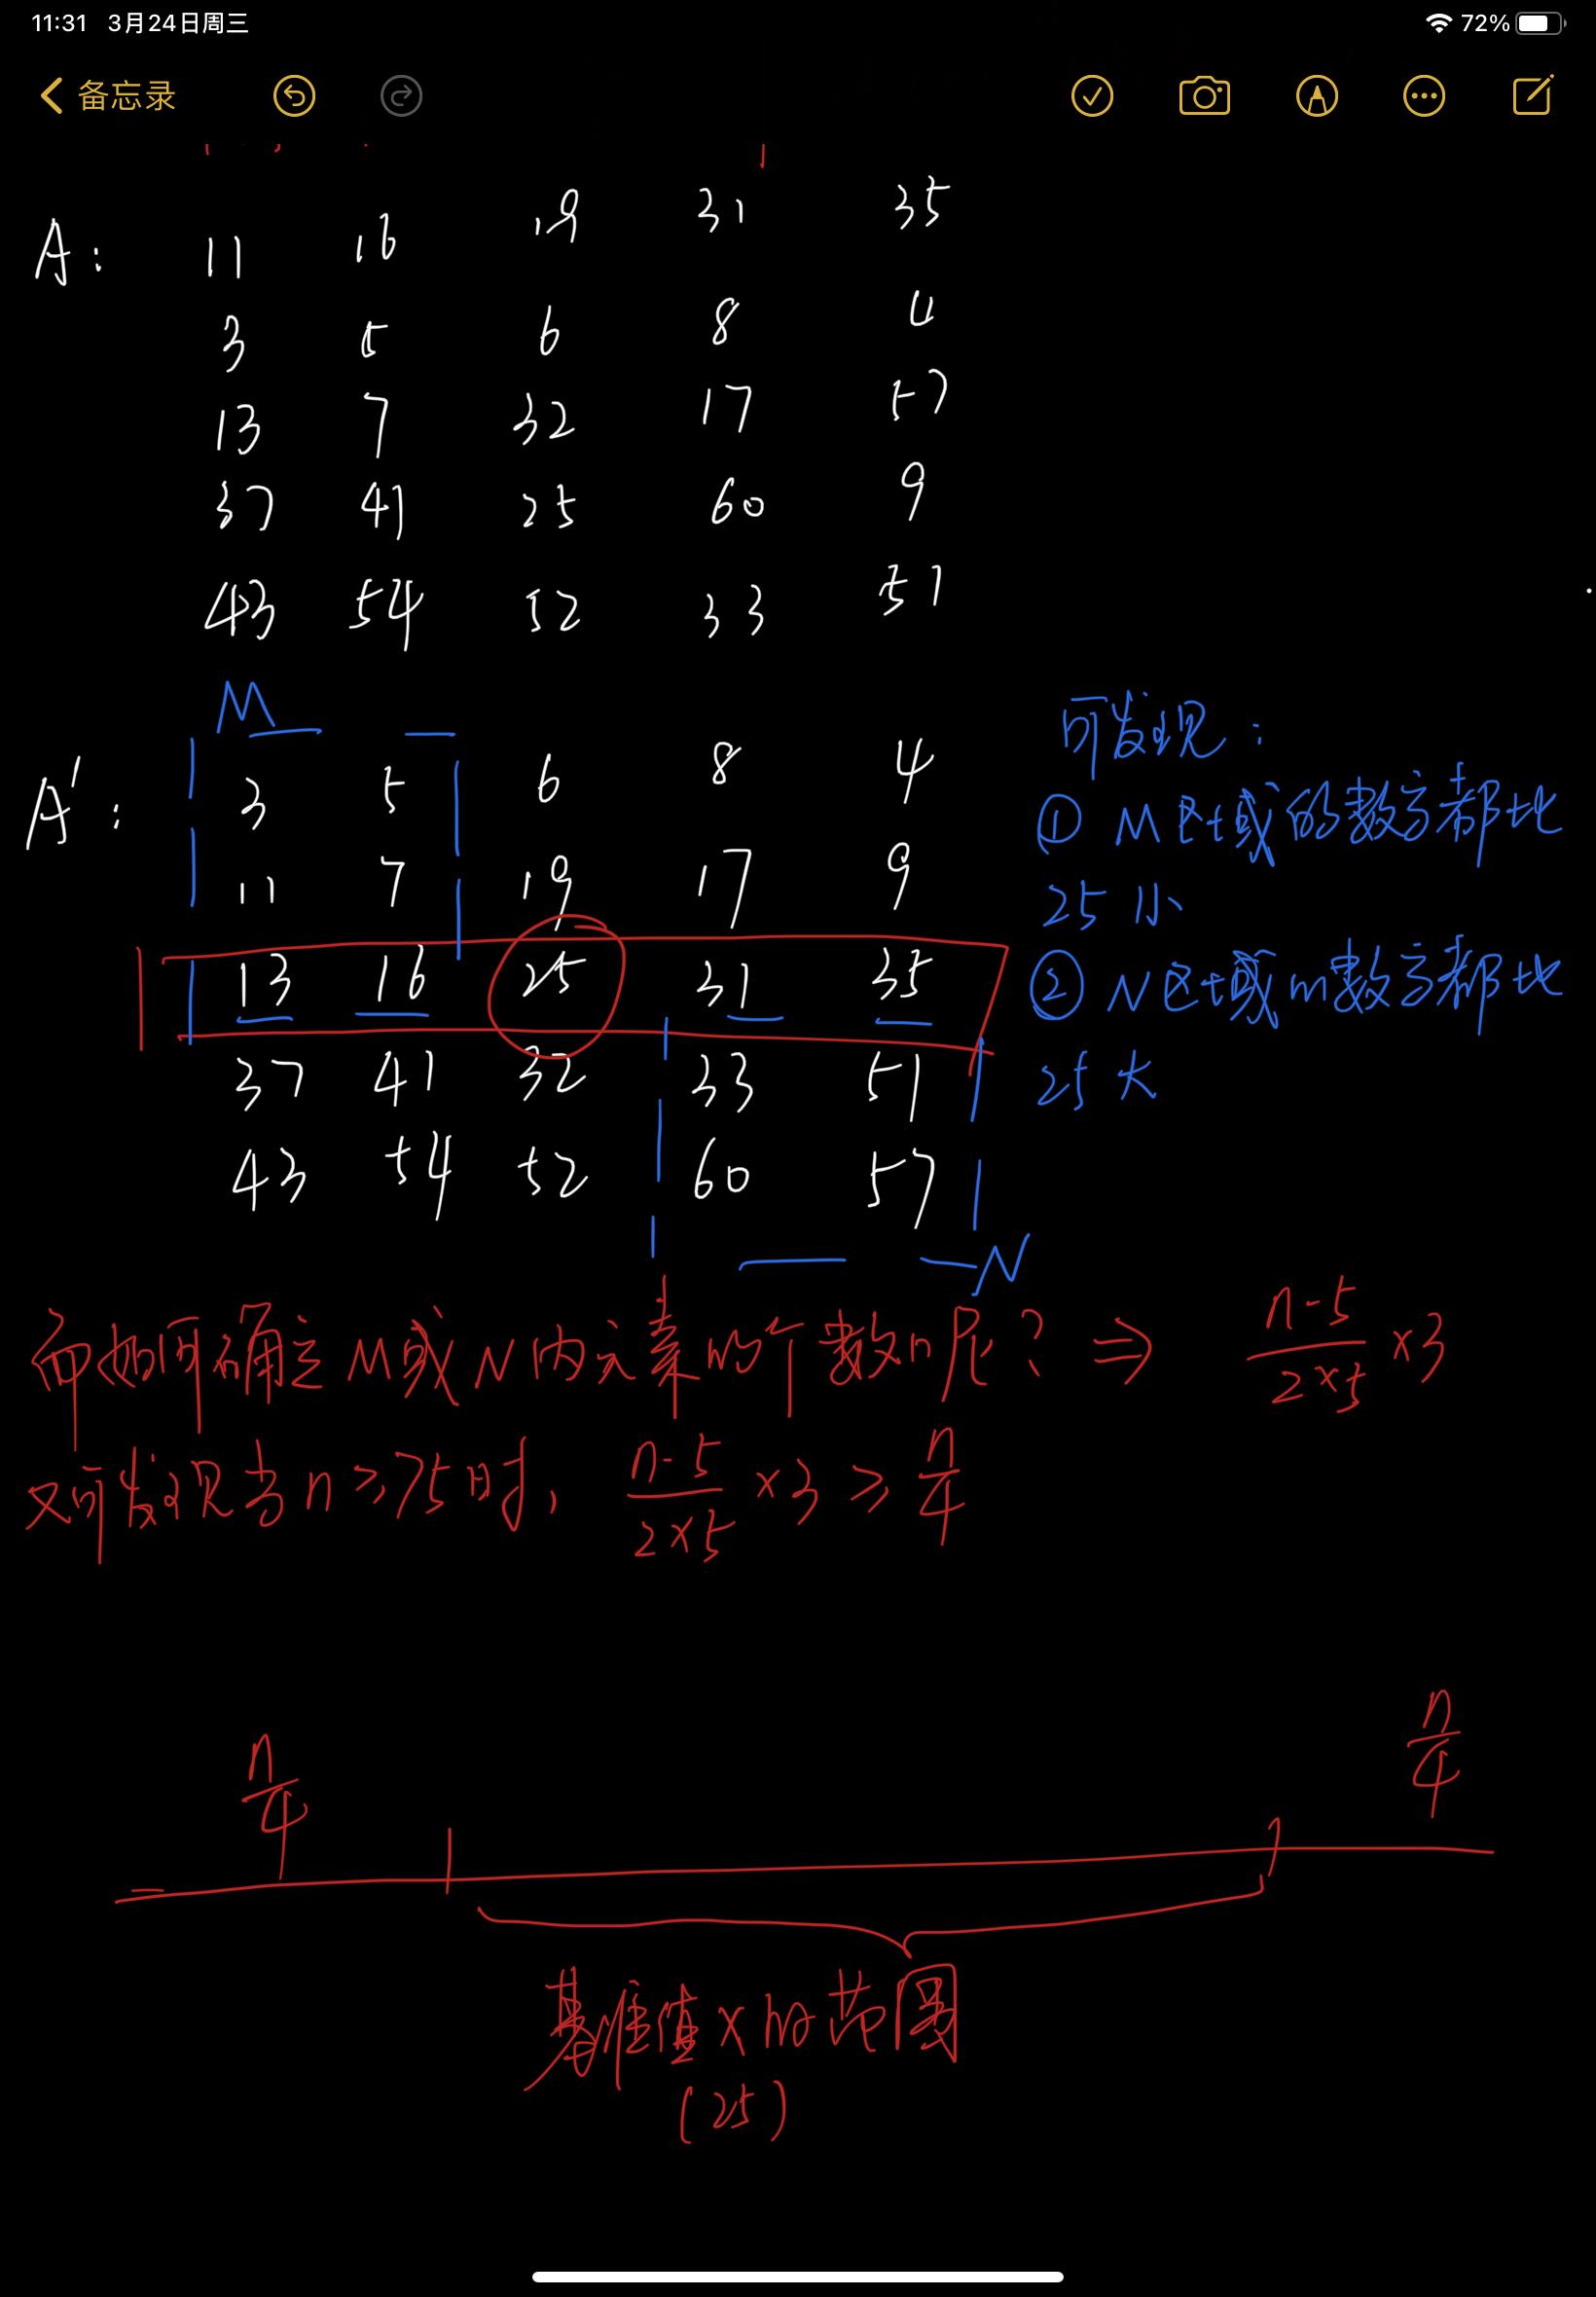 11:31 3月24日周三 72%
备忘录
A: 11 16 19 31 35
3 5 6 8 4
13 7 32 17 57
37 41 25 60 9
43 54 52 33 51
M
A': 3 5 6 8 4
11 7 19 17 9
13 16 25 31 35
37 41 32 33 51
43 54 52 60 57
N
可发现:
① M区域的数字都比
25小
② N区域的数字都比
25大
而如何确定M或N内元素的个数呢? ⇒ (n-5)/(2×5) ×3
又可发现当n≥75时, (n-5)/(2×5) ×3 ≥ n/4
n/4 n/4
基准值x的范围
(25)